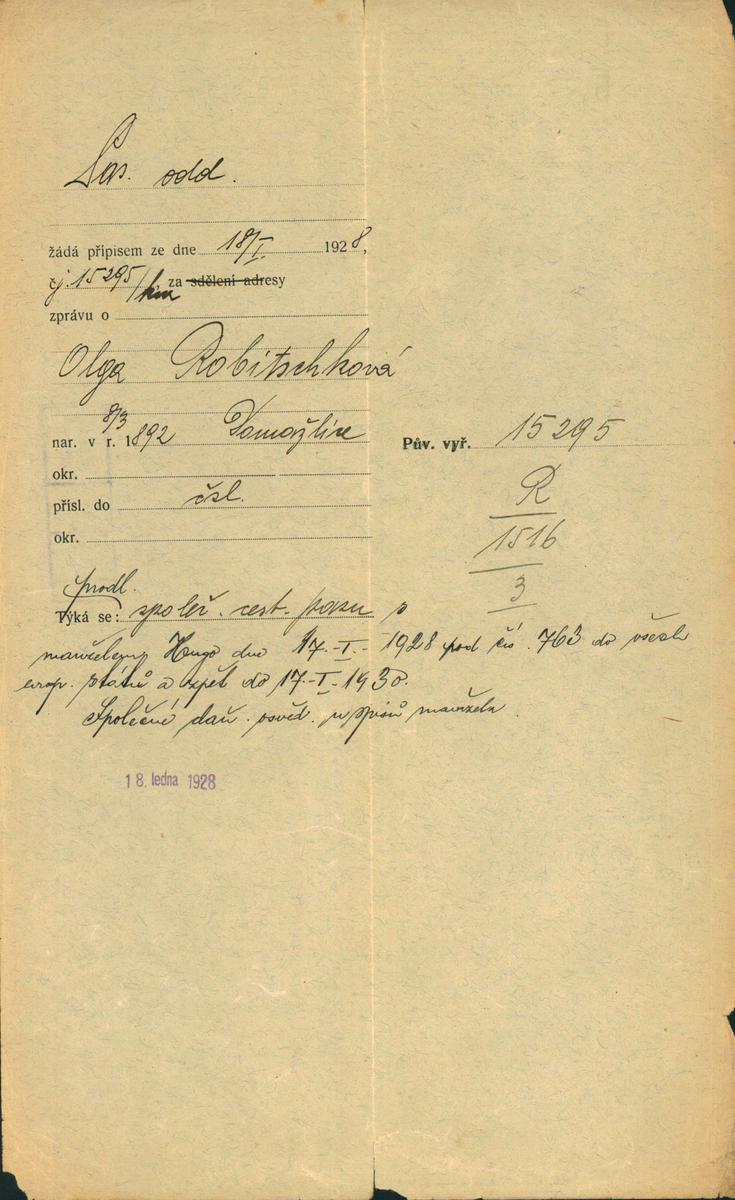 Pas. odd.
žádá přípisem ze dne 18/I 1928,
čj. 15295/km za sdělení adresy
zprávu o
Olga Robitschková
8/3
nar. v r. 1892 Domažlice
Pův. vyř. 15295
okr.
R
přísl. do čsl.
1516
okr.
3
prodl.
Týká se: společ. cest. pasu s
manželem Hugo dne 17.-I.-1928 pod čís. 763 do všech
evrop. států a zpět do 17.-I.-1930.
Společné daň. osvěd. u spisů manžela
18. ledna 1928